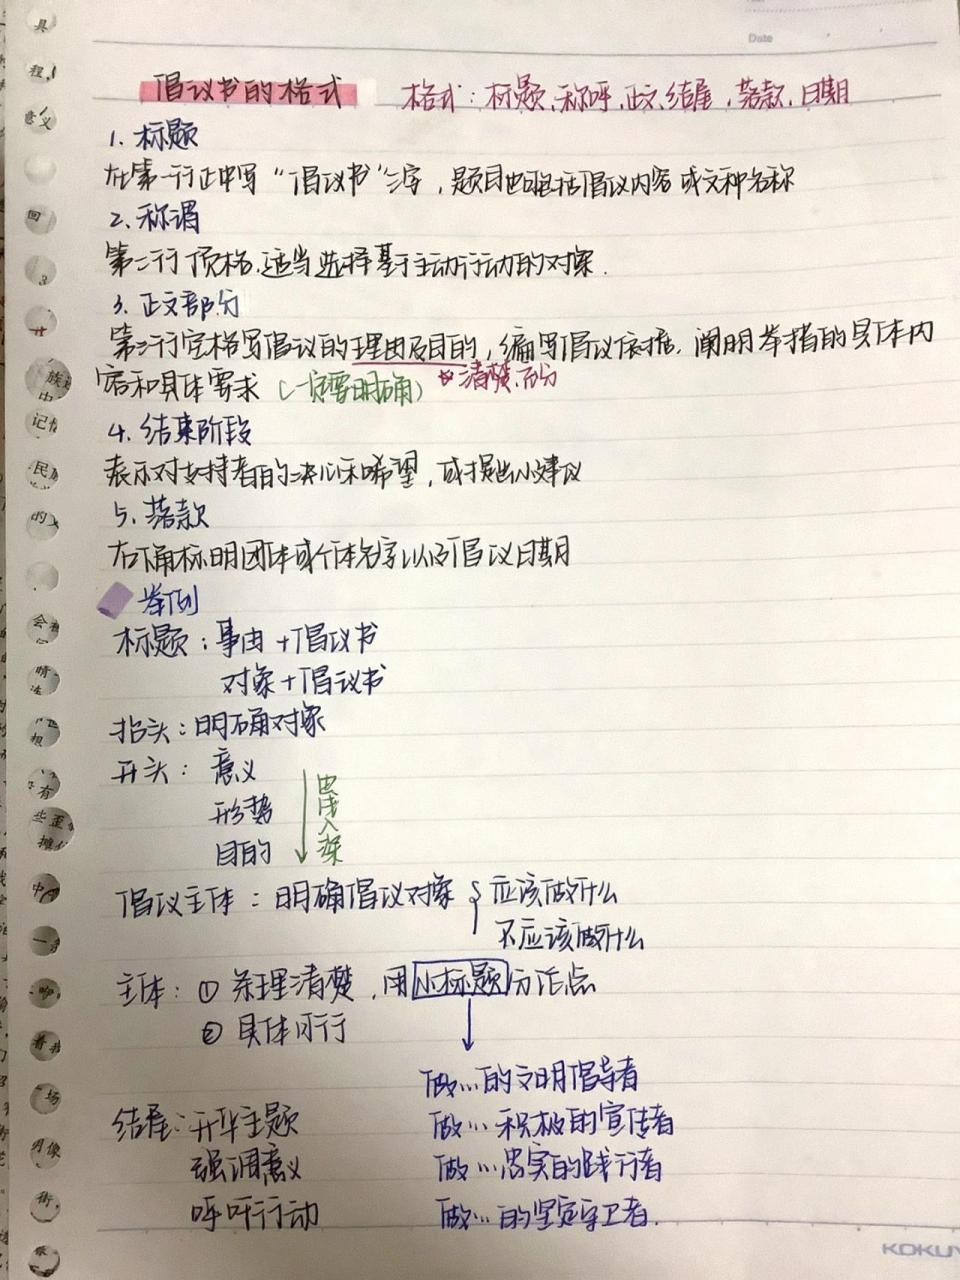 Date
倡议书的格式 格式：标题、称呼、正文、结尾，落款、日期
1. 标题
在第一行正中写“倡议书”三字，题目也可包括倡议内容或文种名称
2. 称谓
第二行顶格，适当选择基于主动行动的对象.
3. 正文部分
第三行空格写倡议的理由及目的，编写倡议依据，阐明举措的具体内
容和具体要求（一定要明确） 清楚、充分
4. 结束阶段
表示对支持者的决心和希望，或提出小建议
5. 落款
右下角标明团体或个体名字以及倡议日期
举例
标题：事由+倡议书
对象+倡议书
抬头：明确对象
开头：意义
形势
目的
由浅入深
倡议主体：明确倡议对象 应该做什么
不应该做什么
主体：① 条理清楚，用小标题分论点
② 具体可行
做…的文明倡导者
结尾：升华主题 做…积极的宣传者
强调意义 做…忠实的践行者
呼吁行动 做…的坚定守卫者.
KOKUY